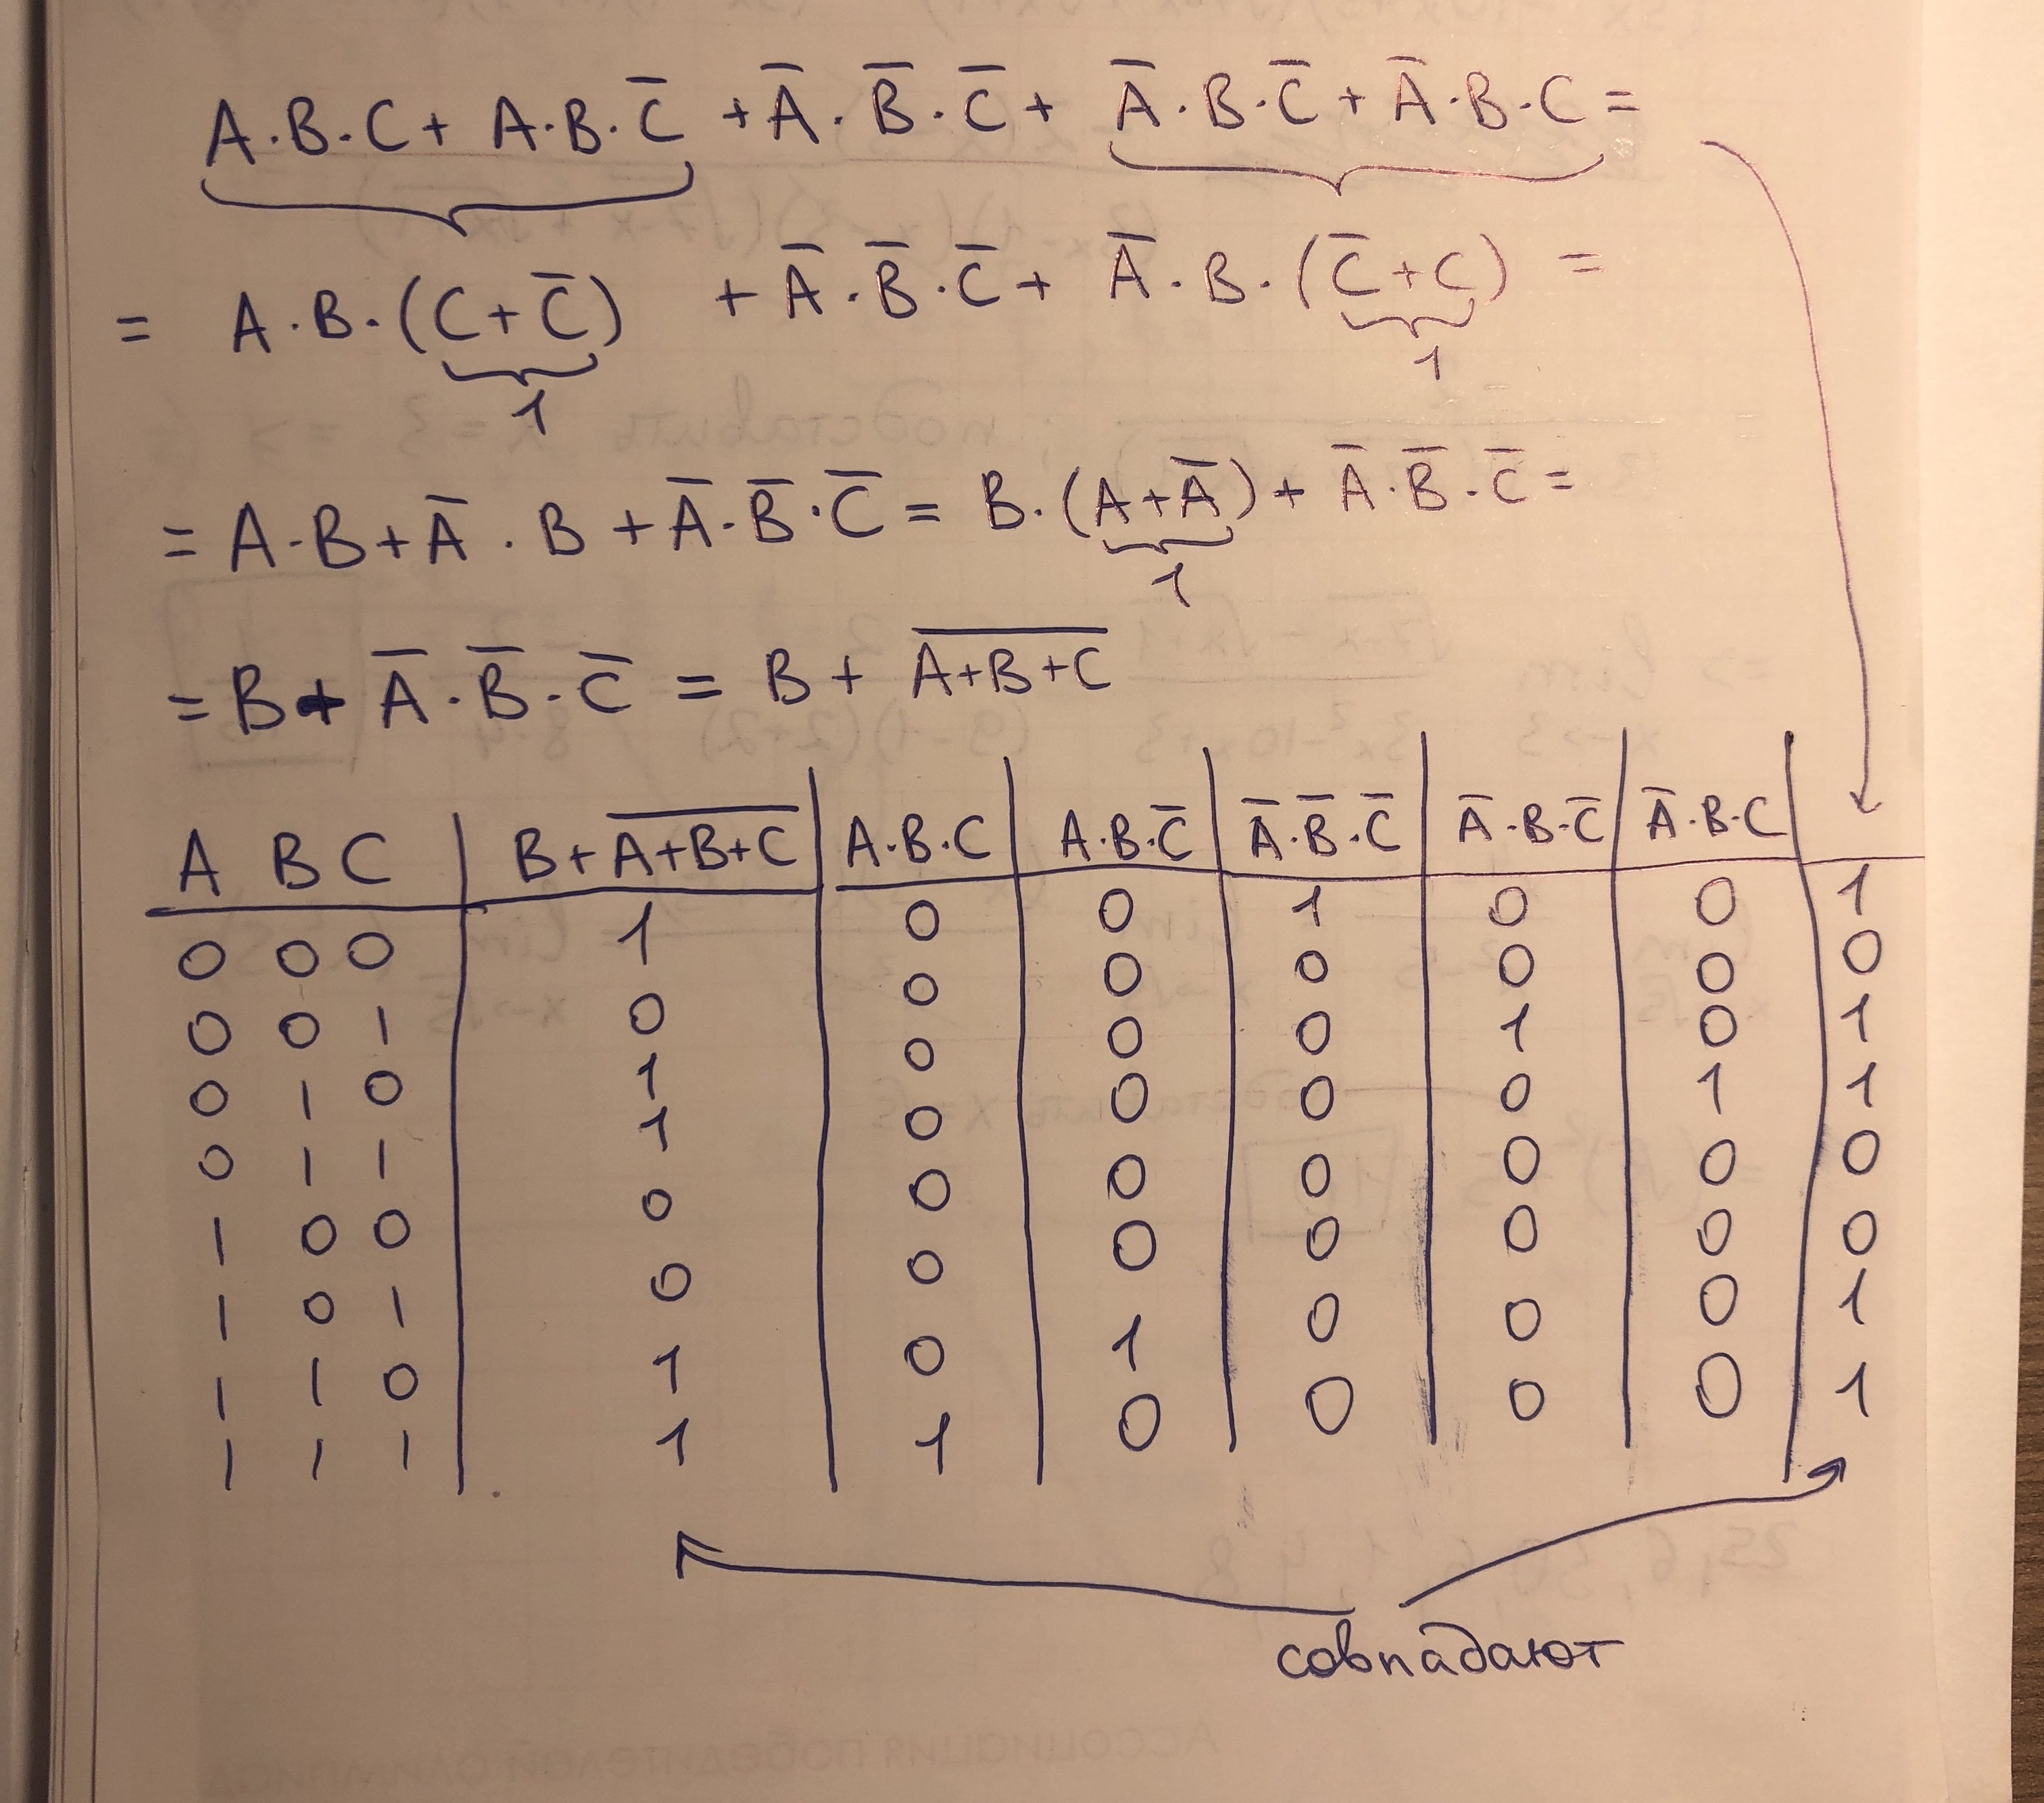 A·B·C + A·B·C̅ + A̅·B̅·C̅ + A̅·B·C̅ + A̅·B·C =
= A·B·(C+C̅) + A̅·B̅·C̅ + A̅·B·(C̅+C) =
1 1
= A·B + A̅·B + A̅·B̅·C̅ = B·(A+A̅) + A̅·B̅·C̅ =
1
= B + A̅·B̅·C̅ = B + \overline{A+B+C}
A B C | B + \overline{A+B+C} | A·B·C | A·B·C̅ | A̅·B̅·C̅ | A̅·B·C̅ | A̅·B·C |
0 0 0 | 1 | 0 | 0 | 1 | 0 | 0 | 1
0 0 1 | 0 | 0 | 0 | 0 | 0 | 0 | 0
0 1 0 | 1 | 0 | 0 | 0 | 1 | 0 | 1
0 1 1 | 1 | 0 | 0 | 0 | 0 | 1 | 1
1 0 0 | 0 | 0 | 0 | 0 | 0 | 0 | 0
1 0 1 | 0 | 0 | 0 | 0 | 0 | 0 | 0
1 1 0 | 1 | 0 | 1 | 0 | 0 | 0 | 1
1 1 1 | 1 | 1 | 0 | 0 | 0 | 0 | 1
совпадают